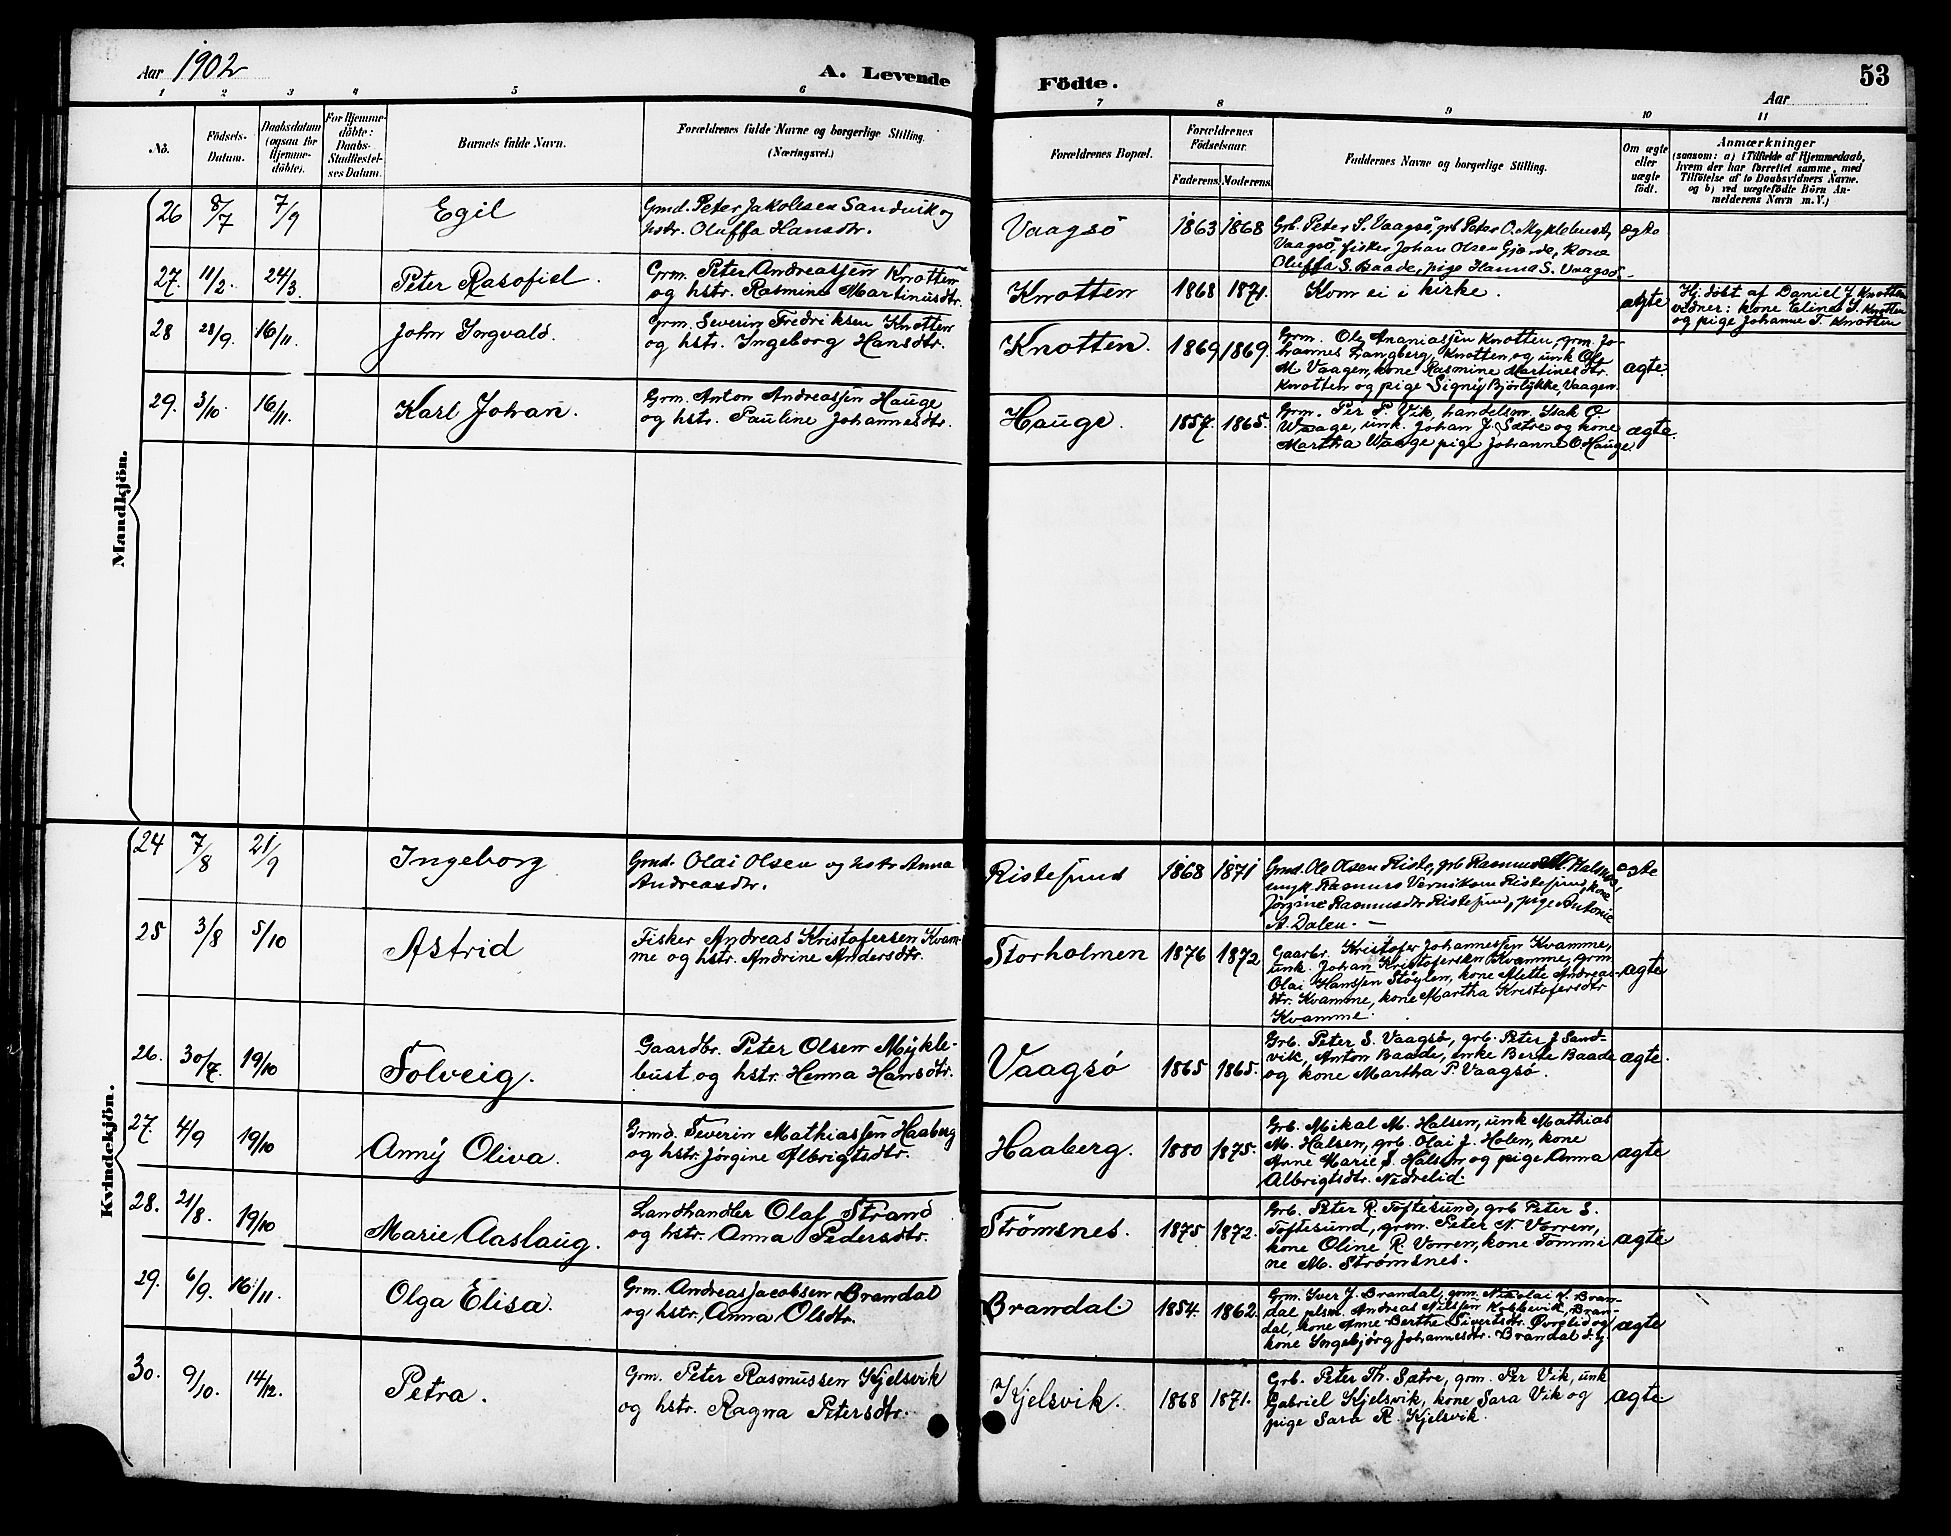 Aar 1902
A. Levende
Födte.
53
Aar
1 2 3 4 5 6 7 8 9 10 11
No.
Födsels-
Datum.
Daabsdatum
(ogsaa for
Hjemme-
döbte).
For Hjemme-
döbte:
Daabs-
Stadfæstel-
ses Datum.
Barnets fulde Navn.
Forældrenes fulde Navne og borgerlige Stilling
(Næringsvei.)
Forældrenes Bopæl.
Forældrenes
Födselsaar.
Faderens. Moderens.
Faddernes Navne og borgerlige Stilling.
Om ægte
eller
uægte
födt.
Anmærkninger
(saasom: a) i Tilfælde af Hjemmedaab,
hvem der har forrettet samme, med
Tilföielse af to Daabsvidners Navne.
og b) ved uægtefödte Börn An-
melderens Navn m. V.)
Mandkjön.
26 8/7 7/9 Egil
Gmd. Peter Jakobsen Sandvik og
hstr. Oluffa Hansdtr.
Vaagsö 1863 1868
Grb. Peter S. Vaagsö, grb Peter O. Myklebust,
Vaagsö, fisker Johan Olsen Gjerde, kone
Oluffa S. Baade, pige Hanna S. Vaagsö
ægte
27. 11/2. 24/3 Peter Rasofiel.
Grm. Peter Andreassen Knotten
og hstr. Rasmine Martinusdtr.
Knotten 1868 1871.
Kom ei i kirke.
ægte
Hj. döbt af Daniel J. Knotten
vidner: kone Eline S. Knotten
og pige Johanne T. Knotten
28 28/9. 16/11. John Ingvald.
Grm. Severin Fredriksen Knotten
og hstr. Ingeborg Hansdtr.
Knotten. 1869 1869.
Grm. Ole Ananiassen Knotten, grm. Jo-
hannes Langberg, Knotten, og unk Ole
M Vaagen, kone Rasmine Martinesdtr.
Knotten og pige Signy Björlykke, Vaagen.
ægte.
29. 3/10. 16/11. Karl Johan.
Grm. Anton Andreassen Hauge
og hstr. Pauline Johannesdtr.
Hauge. 1857. 1865.
Grm. Per P. Vik, handelsm. Isak O.
Waage, unk. Johan J. Sætre og kone
Martha Waage pige Johanne O. Hauge.
ægte.
Kvindekjön.
24 7/8 21/9 Ingeborg
Gmd. Olai Olsen og hstr Anna
Andreasdtr.
Ristesund 1868 1871
Gmd. Ole Olsen Riste, grb Rasmus M. Halsnes,
ungk. Rasmus Verniksen Ristesund, kone
Jörgine Rasmusdtr Ristesund, pige Antonie
A. Dalen. –
egte
25 3/8 5/10 Astrid
Fisker Andreas Kristofersen Kvam-
me og hstr. Andrine Andersdtr.
Storholmen 1876 1872
Gaarbr. Kristofer Johannessen Kvamme,
unk. Johan Kristofersen Kvamme, grm.
Olai Hanssen Støylen, kone Alette Andreas-
dtr. Kvamme, kone Martha Kristofersdtr
Kvamme.
ægte
26. 30/7. 19/10 Solveig.
Gaardbr. Peter Olsen Mykle-
bust og hstr. Henna Hansdtr.
Vaagsø 1865 1865.
Grb. Peter S. Vaagsø, grb. Peter J Sand-
vik, Anton Baade, enke Berte Baade
og kone Martha P. Vaagsø.
ægte.
27. 4/9 19/10 Anny Oliva.
Grmd. Severin Mathiassen Haaberg
og hstr. Jørgine Albrigtsdtr.
Haaberg. 1880 1875.
Grb. Mikal M. Halsen, unk Mathias
M. Halsen, grb. Olai J. Holen, kone
Anne Marie S. Halsen og pige Anna
Albrigtsdtr. Nedrelid.
ægte
28. 21/8. 19/10 Marie Aaslaug.
Landhandler Olaf Strand
og hstr. Anna Pedersdtr.
Strømsnes. 1875 1872.
Grb. Peter R. Toftesund, grb Peter S.
Toftesund, grm. Peter N. Vorren,
kone Oline R. Vorren, kone Tommi
ne M. Strømsnes.
ægte
29. 6/9. 16/11. Olga Elisa.
Grm. Andreas Jacobsen Brandal
og hstr. Anna Olsdtr.
Brandal. 1854. 1862.
Grm. Iver J. Brandal, grm. Nikolai K. Bran-
dal plsm. Andreas Nilssen Kobbevik, Bran-
dal, kone Anne Berthe Sivertsdtr. Øvrelid og
kone Ingebjørg Johannesdtr. Brandal d.y.
ægte
30. 9/10. 14/12. Petra.
Grm. Peter Rasmussen Kjelsvik
og hstr. Ragna Petersdtr.
Kjelsvik. 1868 1871.
Grb. Peter Th. Sætre, grm. Per Vik, unk
Gabriel Kjelsvik, kone Sara Vik og
pige Sara R. Kjelsvik.
ægte.